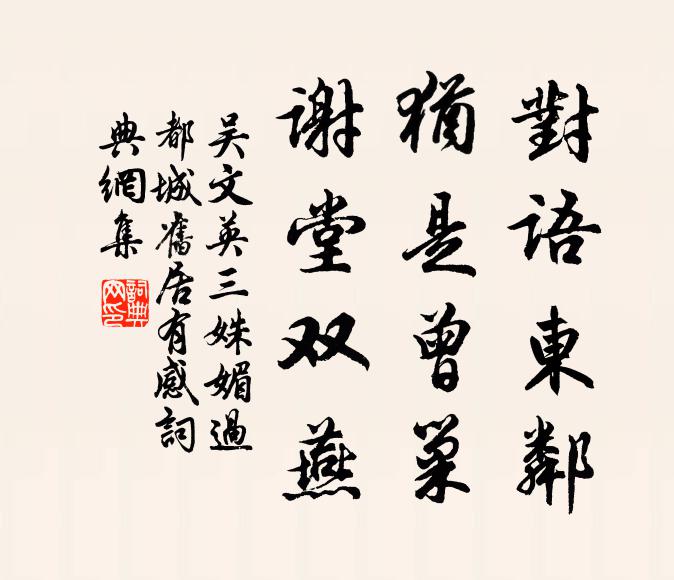 對語東鄰
猶是曾巢
謝堂双燕
吴文英三姝媚過
都城舊居有感詞
典網集
詞典
网印